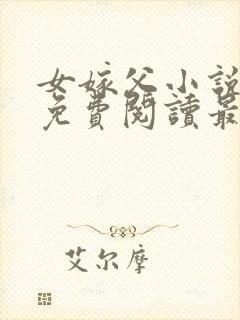 女嫁父小說
免費閱讀最
艾尔摩